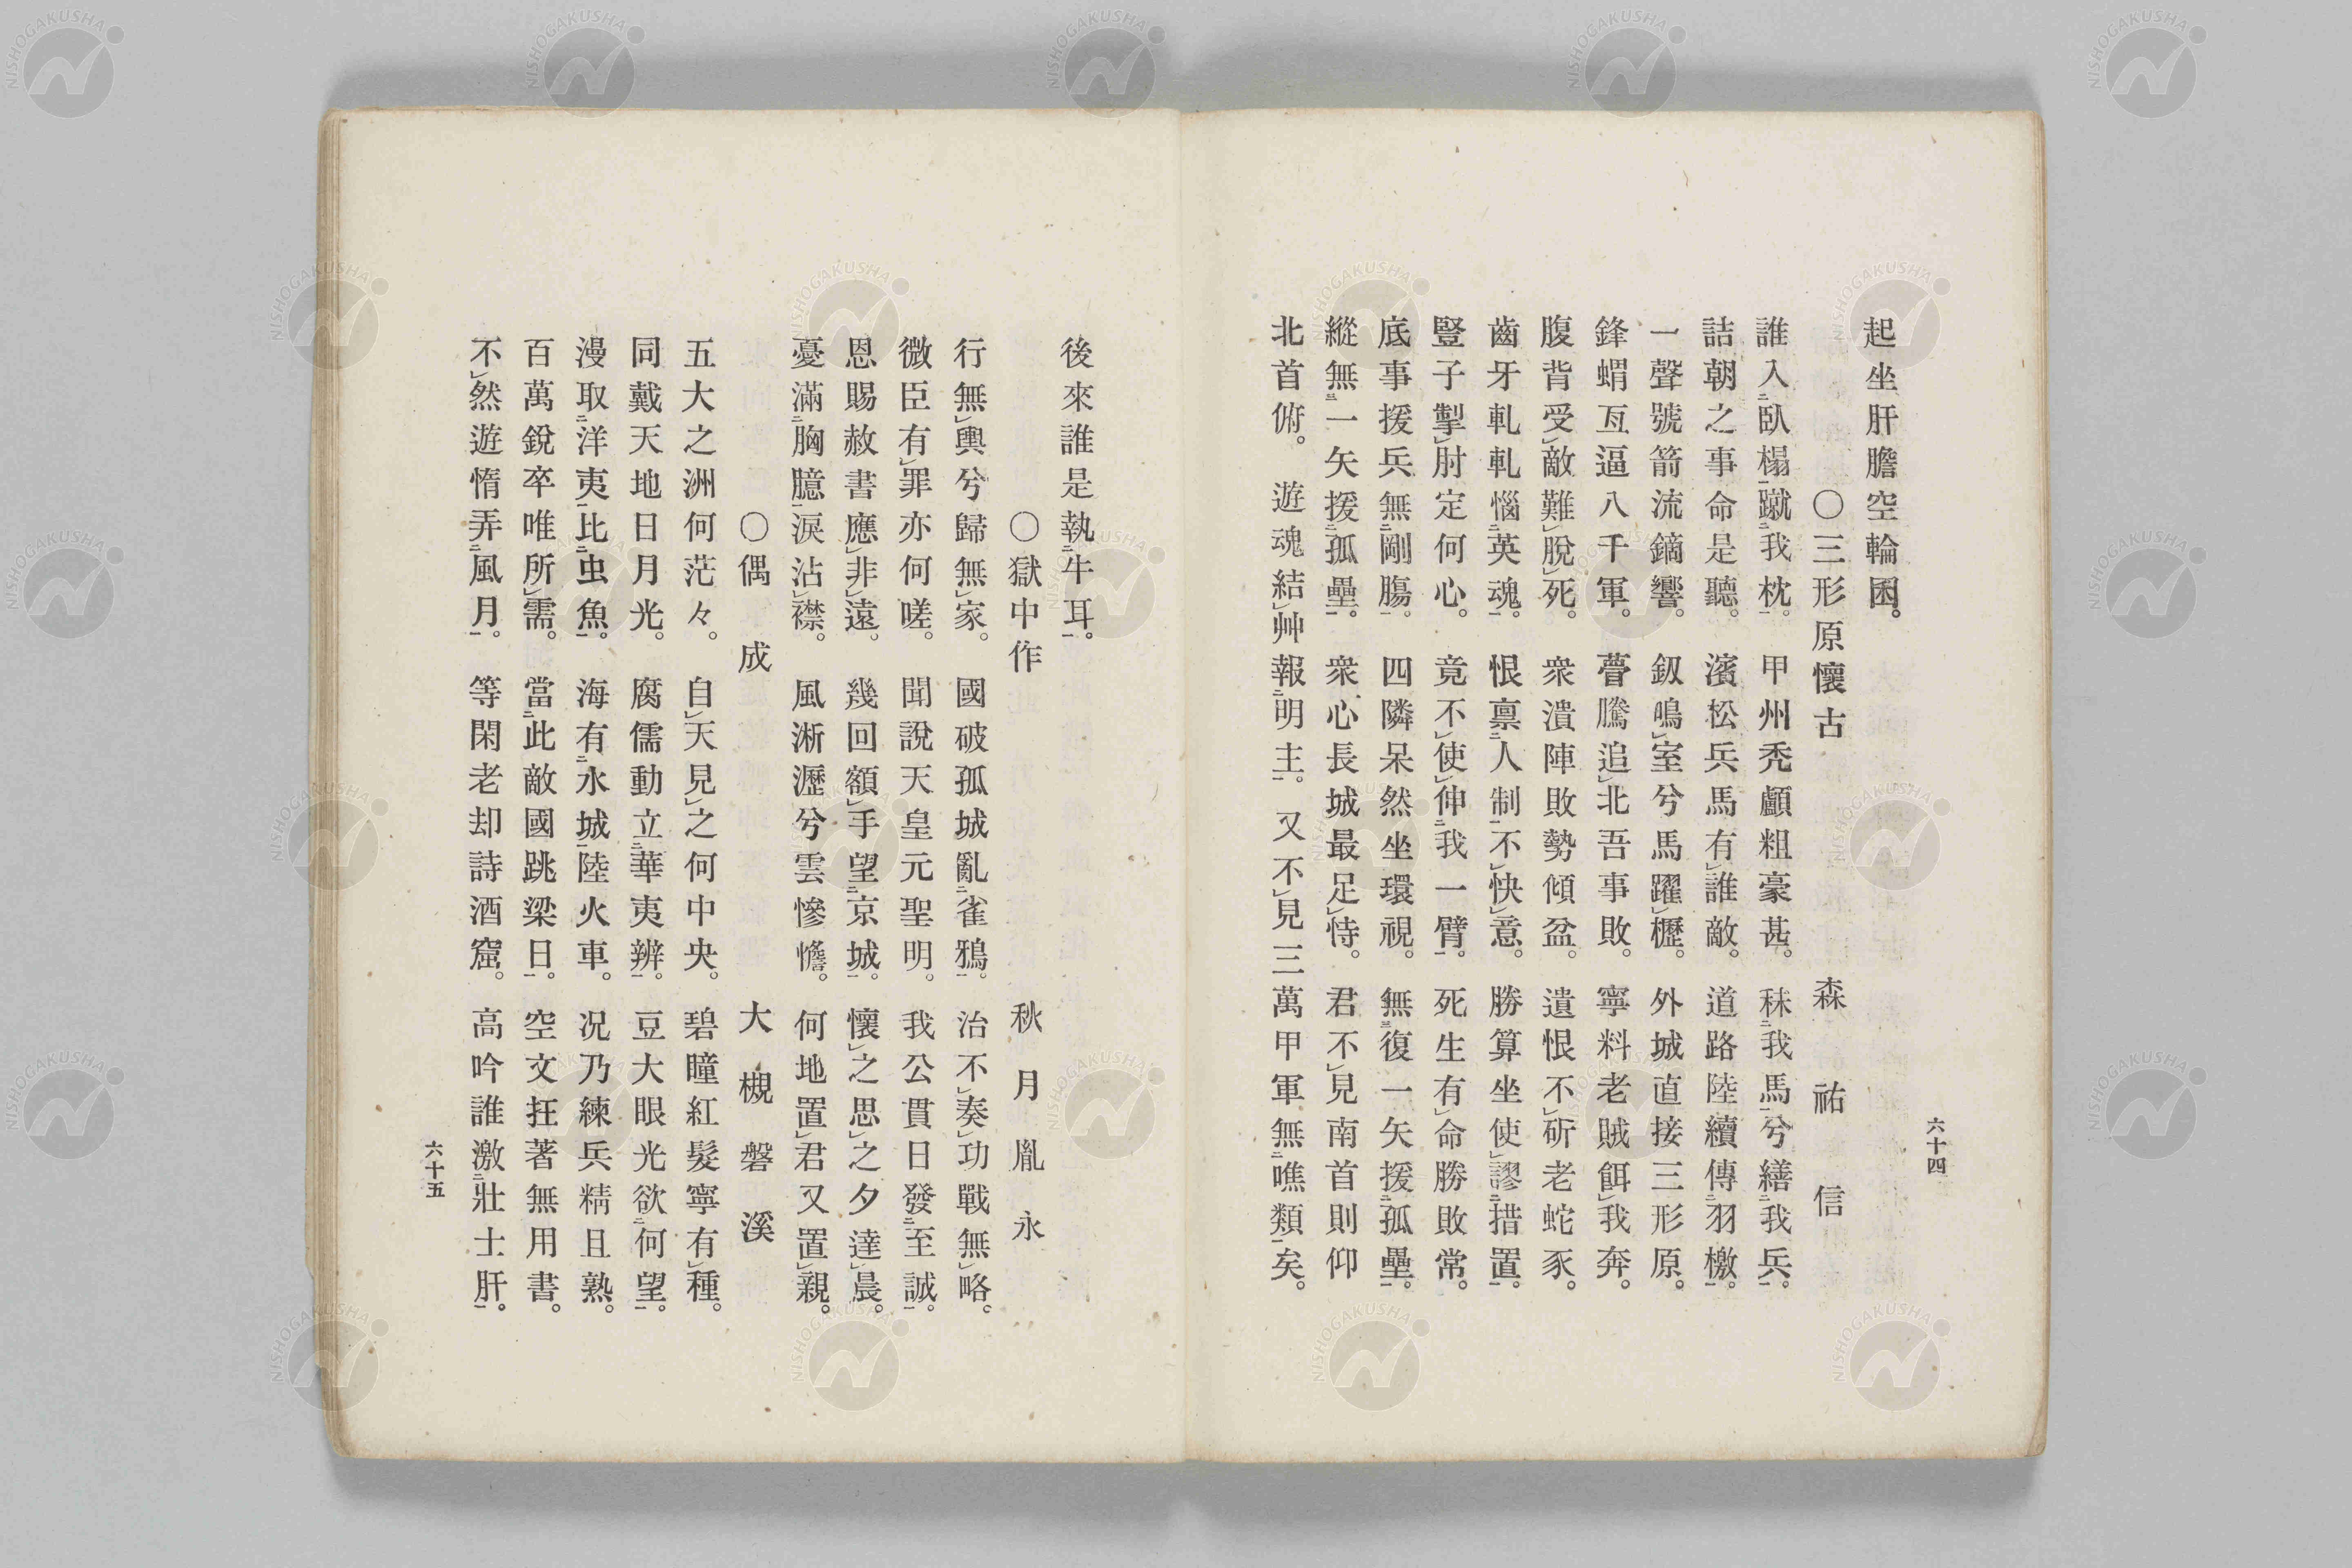 六十四
起坐肝膽空輪囷。
〇三形原懷古 森祐信
誰入臥榻蹴我枕。甲州禿顱粗豪甚。秣我馬兮繕我兵。
詰朝之事命是聽。濱松兵馬有誰敵。道路陸續傳羽檄。
一聲號箭流鏑響。釼鳴室兮馬躍櫪。外城直接三形原。
鋒蝟亙逼八千軍。瞢騰追北吾事敗。寧料老賊餌我奔。
腹背受敵難脫死。衆潰陣敗勢傾盆。遺恨不斫老蛇豕。
齒牙軋軋惱英魂。恨禀人制不快意。勝算坐使謬措置。
豎子掣肘定何心。竟不使伸我一臂。死生有命勝敗常。
底事援兵無剛膓。四隣呆然坐環視。無復一矢援孤壘。
縱無一矢援孤壘。衆心長城最足恃。君不見南首則仰
北首俯。遊魂結艸報明主。又不見三萬甲軍無噍類矣。
後來誰是執牛耳。
〇獄中作 秋月胤永
行無輿兮歸無家。國破孤城亂雀鴉。治不奏功戰無略。
微臣有罪亦何嗟。聞說天皇元聖明。我公貫日發至誠。
恩賜赦書應非遠。幾回額手望京城。懷之思之夕達晨。
憂滿胸臆淚沾襟。風淅瀝兮雲慘憺。何地置君又置親。
〇偶成 大槻磐溪
五大之洲何茫々。自天見之何中央。碧瞳紅髮寧有種。
同戴天地日月光。腐儒動立華夷辨。豆大眼光欲何望。
漫取洋夷比虫魚。海有水城陸火車。况乃練兵精且熟。
百萬銳卒唯所需。當此敵國跳梁日。空文抂著無用書。
不然遊惰弄風月。等閑老却詩酒窟。高吟誰激壯士肝。
六十五
NISHOGAKUSHA